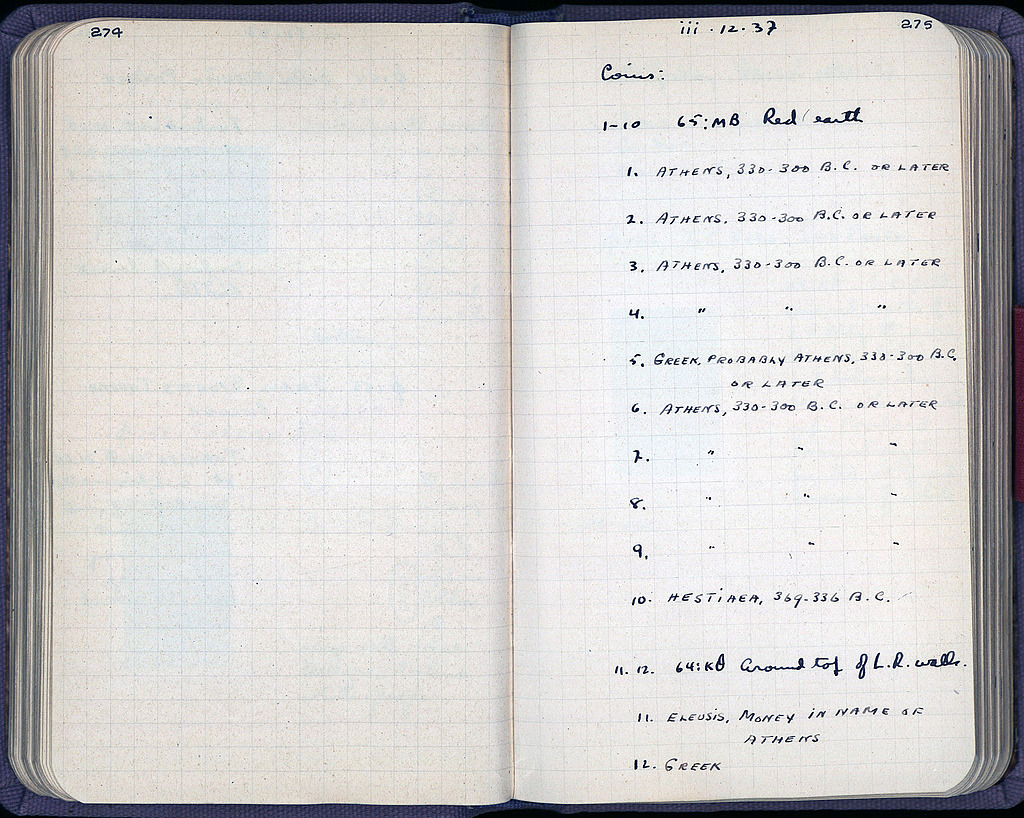 274
iii · 12 · 37
275
Coins:
1-10 65:MB Red earth
1. ATHENS, 330-300 B.C. OR LATER
2. ATHENS, 330-300 B.C. OR LATER
3. ATHENS, 330-300 B.C. OR LATER
4. " " "
5. GREEK, PROBABLY ATHENS, 330-300 B.C.
OR LATER
6. ATHENS, 330-300 B.C. OR LATER
7. " " "
8. " " "
9. " " "
10. HESTIAEA, 369-336 B.C.
11. 12. 64:KΘ Around top of L.R. walls.
11. ELEUSIS, MONEY IN NAME OF
ATHENS
12. GREEK